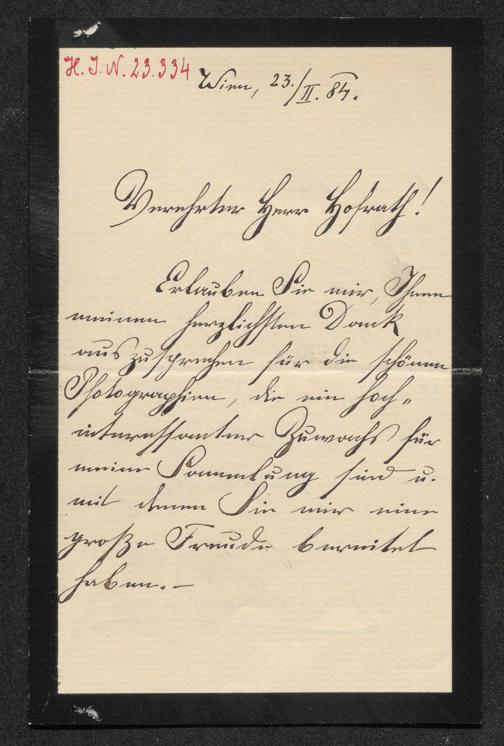 H. I. N. 23.334
Wien, 23./II. 84.
Verehrter Herr Hofrath!
Erlauben Sie mir, Ihnen
meinen herzlichsten Dank
auszusprechen für die schönen
Photographien, die ein hoch-
interessanter Zuwachs für
meine Sammlung sind u.
mit denen Sie mir eine
große Freude bereitet
haben.—